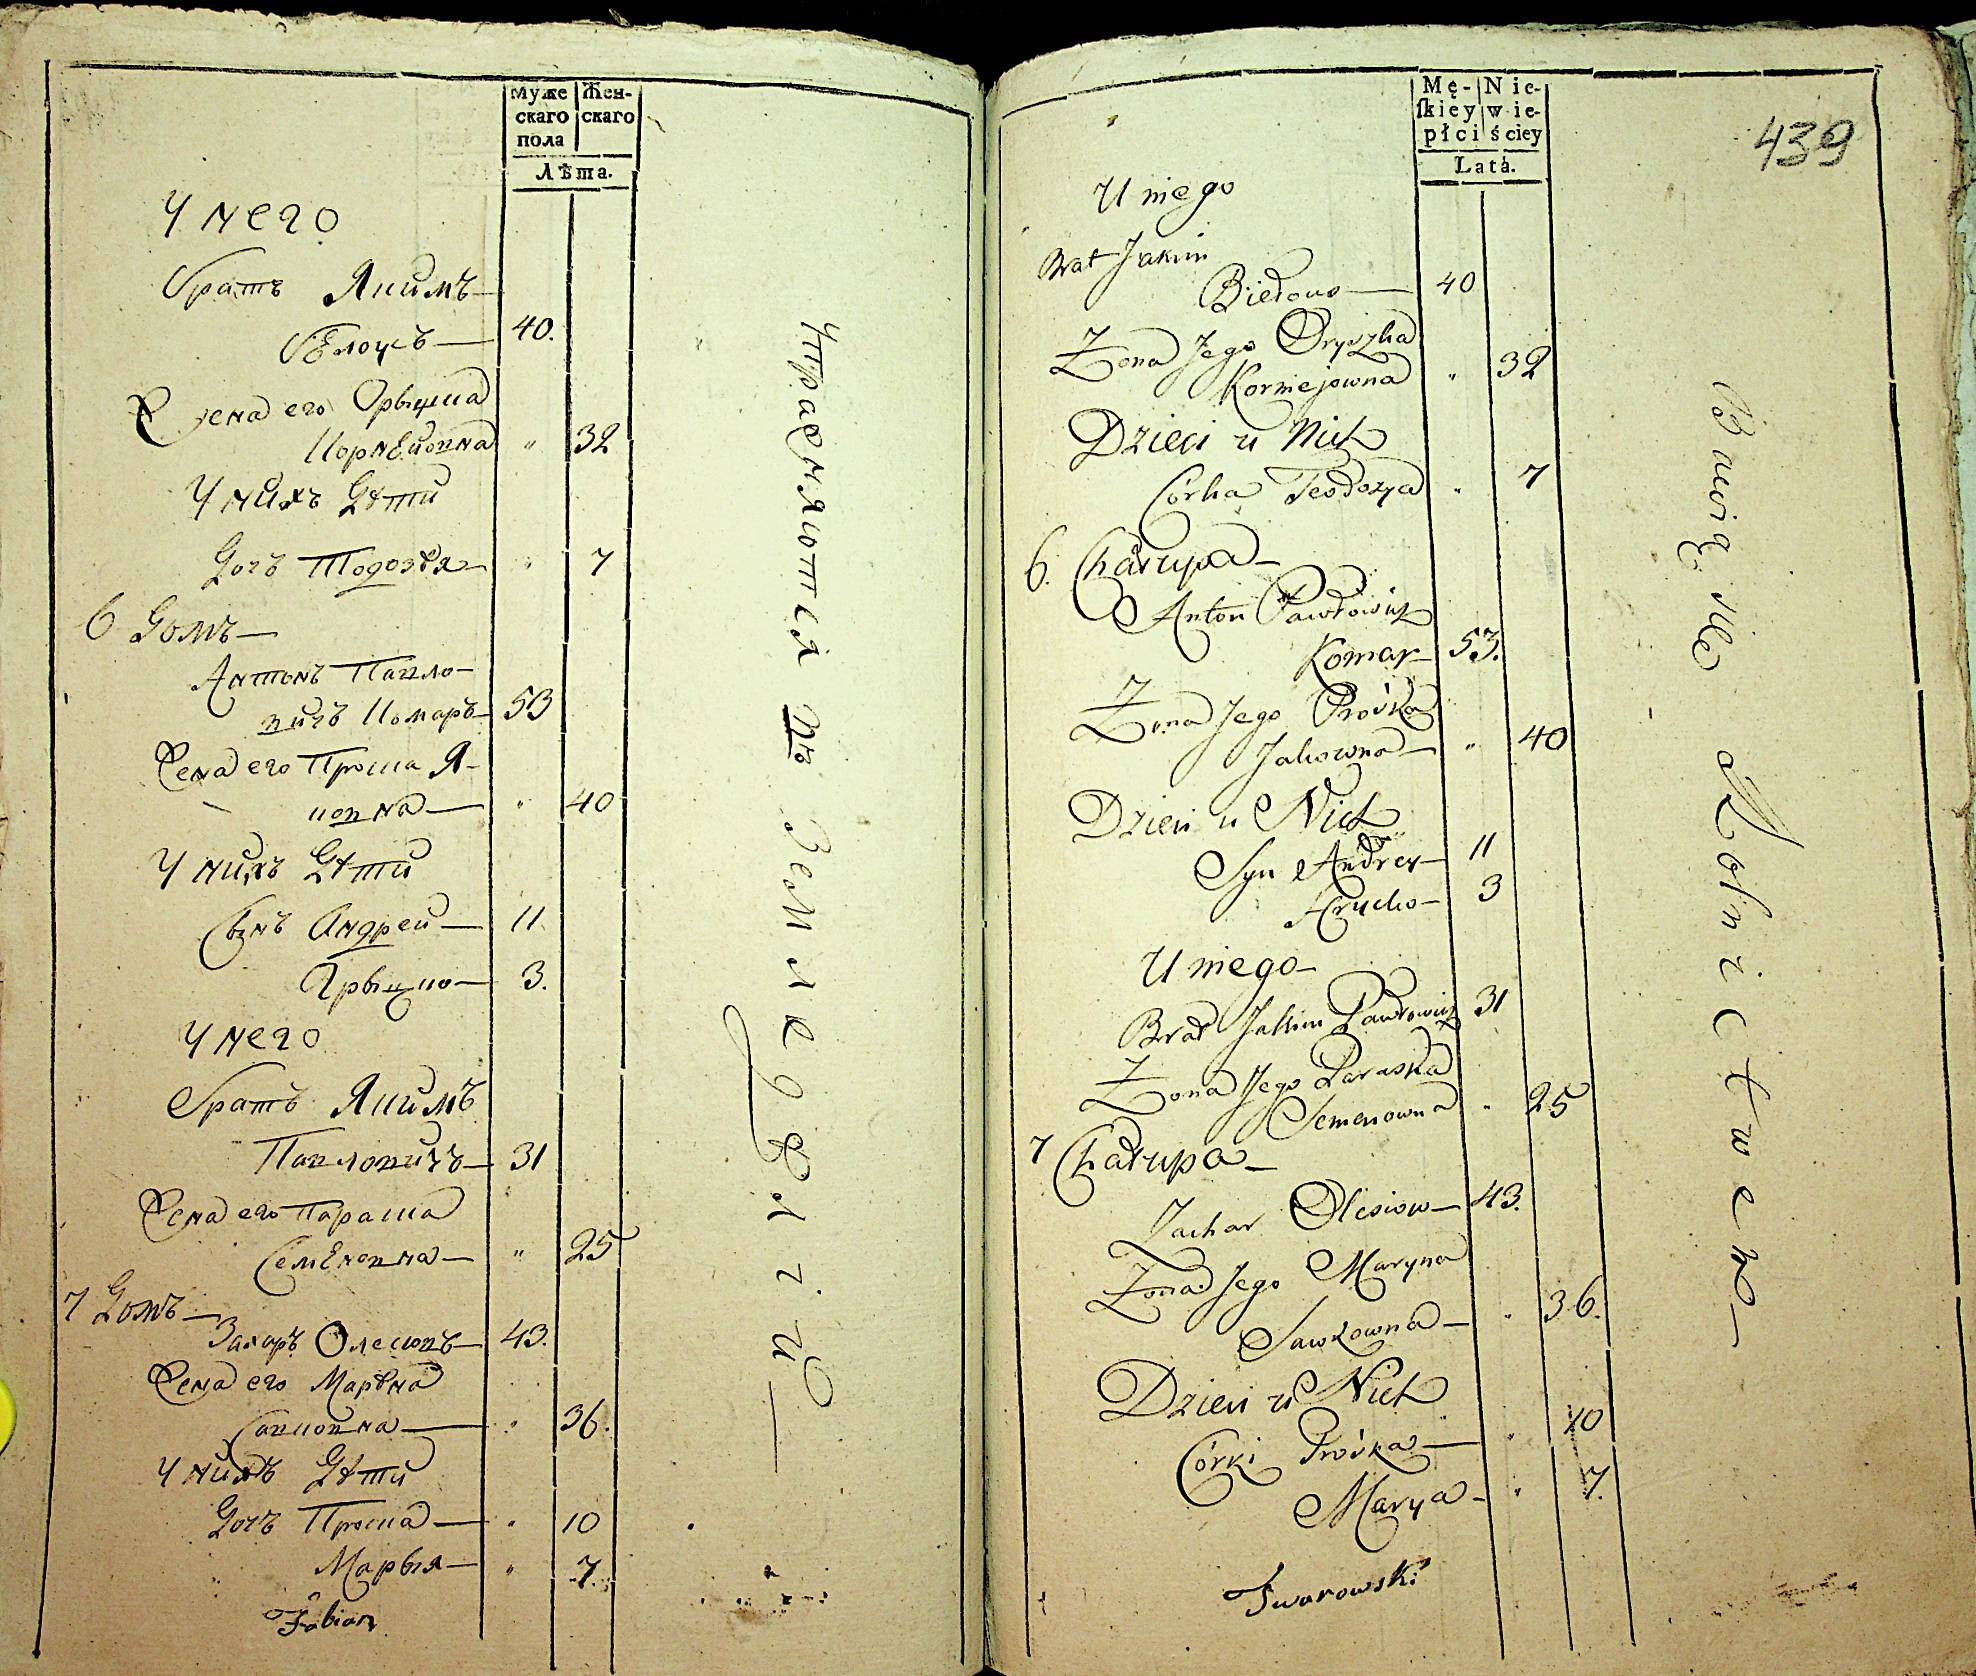 Муже
скаго
пола
Жен-
скаго
Лѣта.
У него
братъ Якимъ
Бѣлоусъ — 40.
Жена его Орышка
Корнѣйовна " 32
У нихъ дѣти
Дочь Тодозья — " 7
6 Домъ —
Антонъ Павло-
вичъ Комаръ — 53
Жена его Проска Я-
ковна — " 40
У нихъ дѣти
Сынъ Андрей — 11
Грыцко — 3.
У него
братъ Якимъ
Павловичъ — 31
Жена его Параска
Семеновна — " 25
7 Домъ —
Захаръ Олесювъ — 43.
Жена его Марына
Савковна — " 36.
У нихъ дѣти
Дочь Проска — " 10
Марыя — " 7.
Fabian
Упражняются въ земледѣлїи —
439
Mę-
ſkiey
płci
Nie-
wie-
ściey
Lata.
U niego
Brat Jakim
Biełous — 40
Zona Jego Oryszka
Korniejowna " 32
Dzieci u Nich
Córka Teodozya " 7
6. Chałupa —
Anton Pawłowicz
Komar — 53.
Zona Jego Proska
Jakowna — " 40
Dzieci u Nich
Syn Andrey — 11
Hrycko — 3
U niego —
Brat Jakim Pawłowicz 31
Zona Jego Paraska
Semenowna " 25
7 Chałupa —
Zachar Olesiow — 43.
Zona Jego Maryna
Sawkowna — " 36.
Dzieci u Nich
Córki Proska — " 10
Marya — " 7.
Tworowski
Bawią się Rolnictwem —